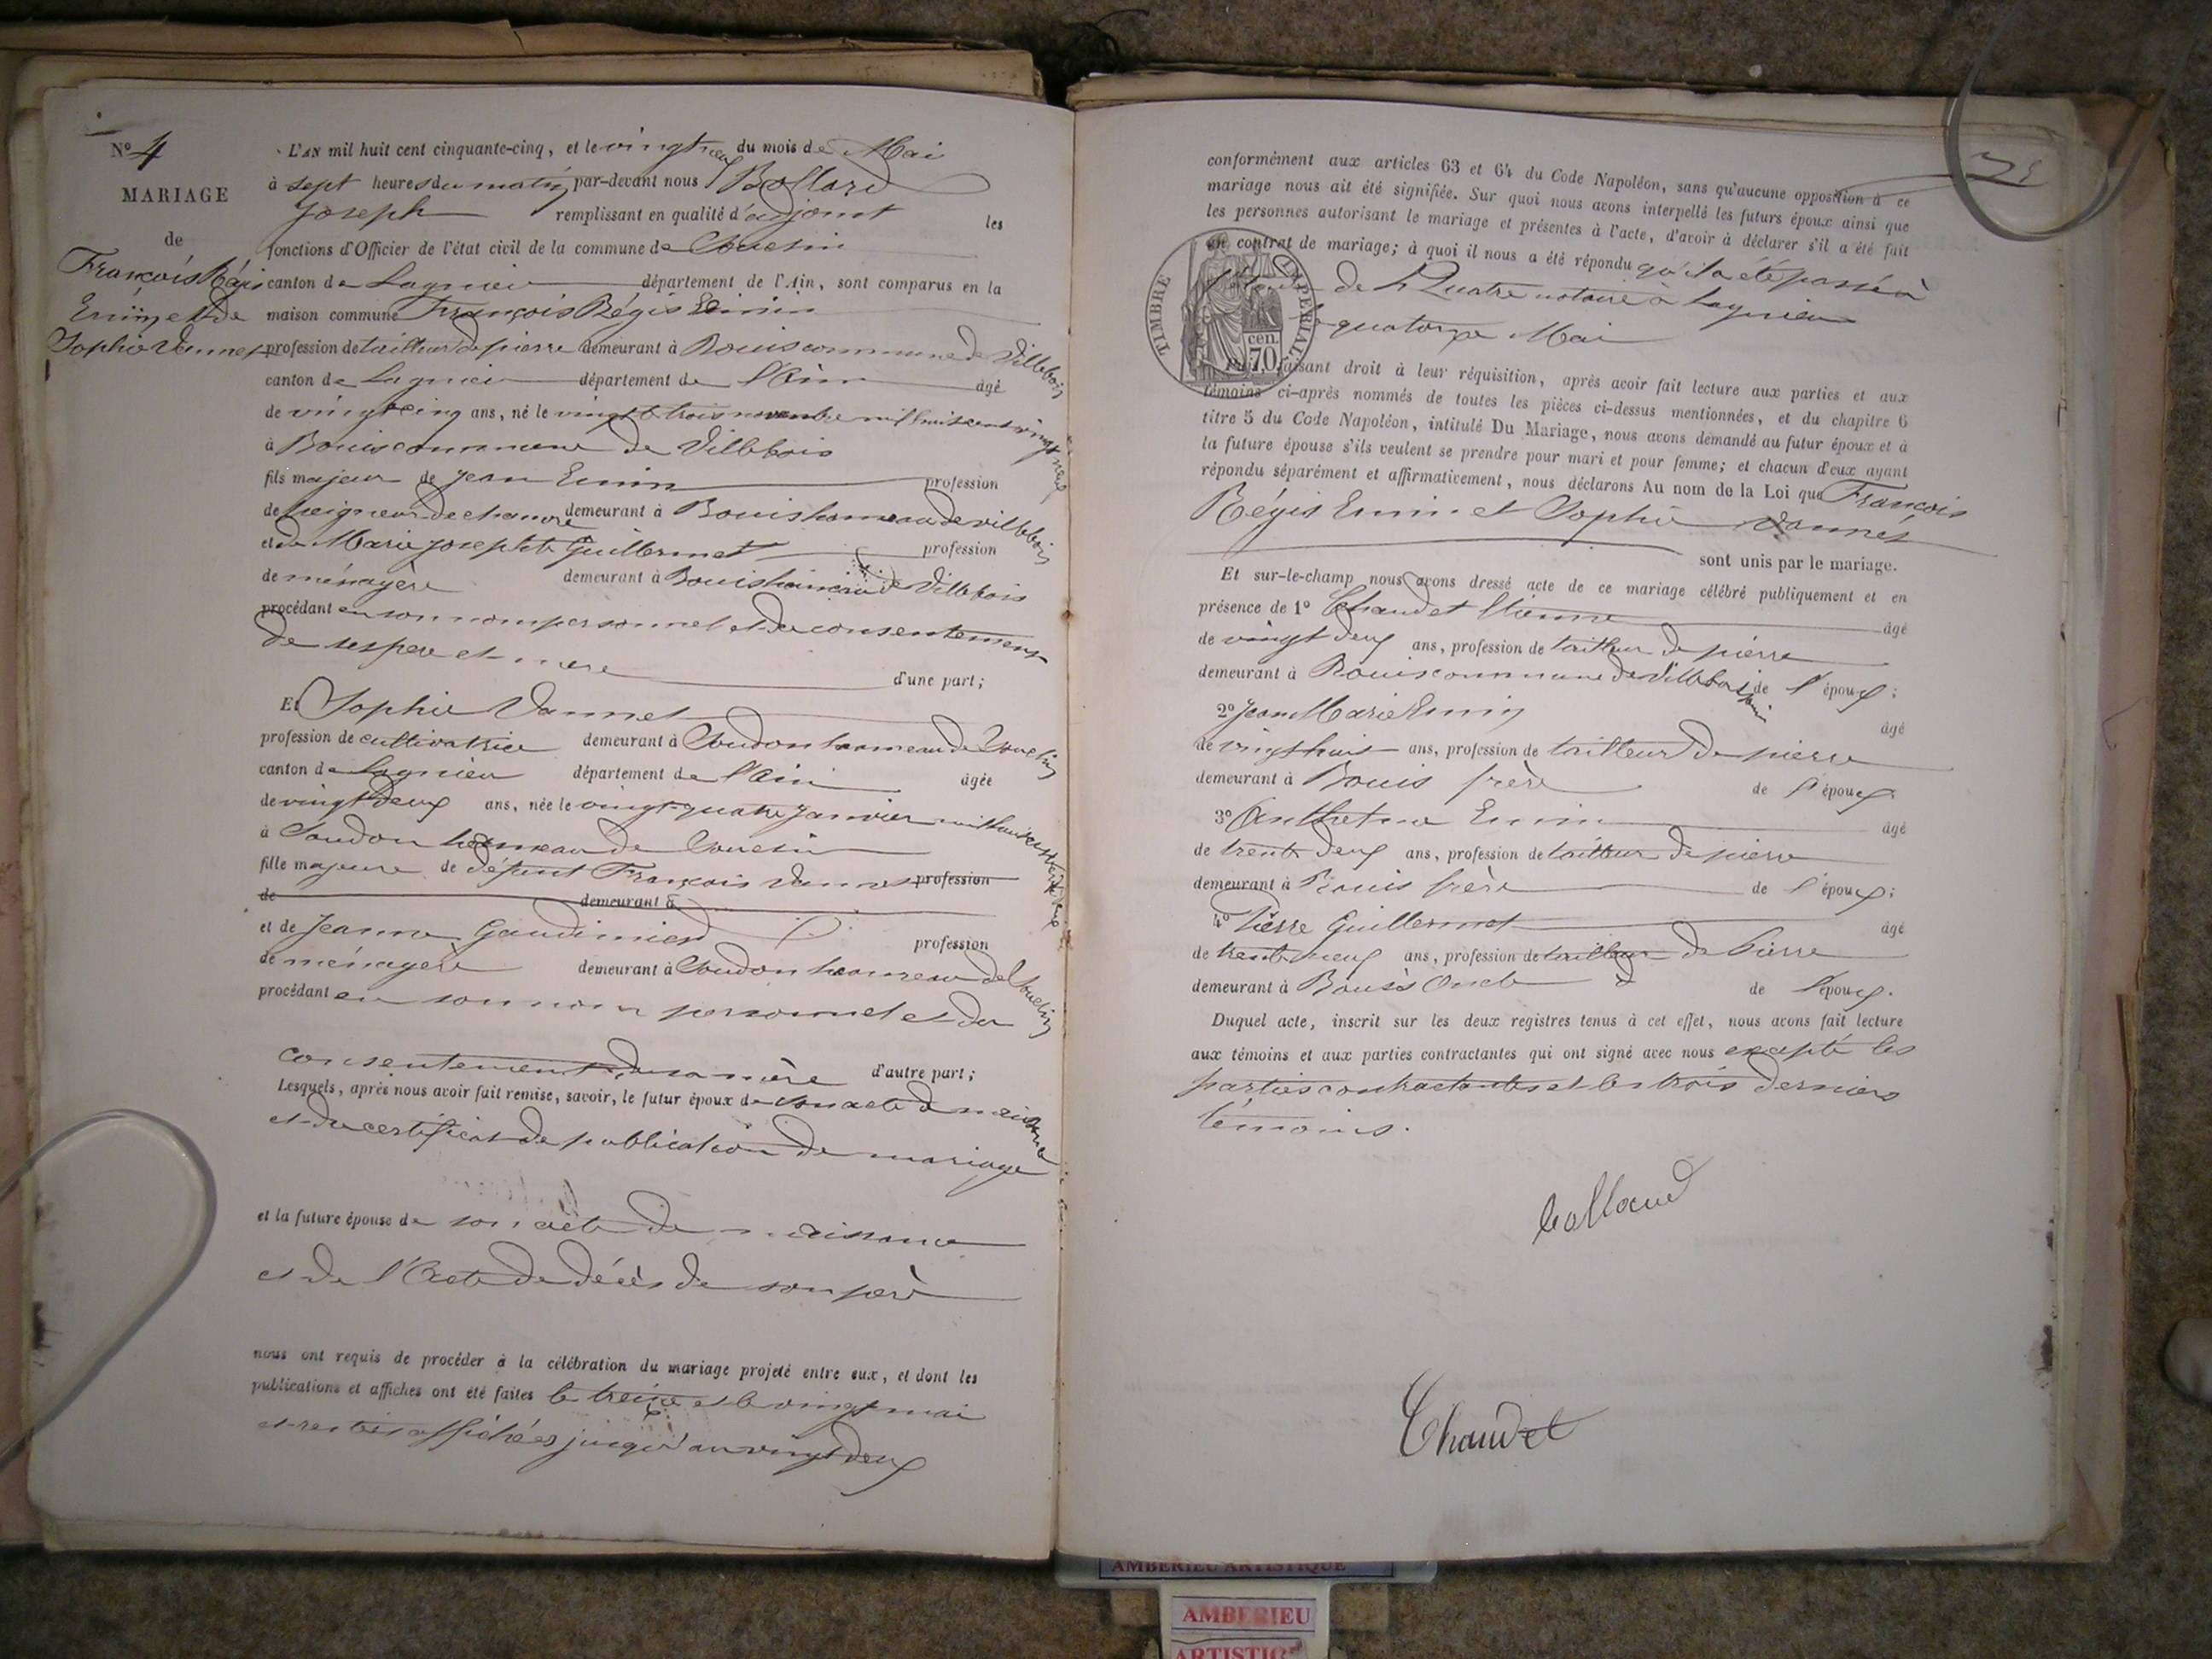 Nº 4
MARIAGE
de
François Régis
Emin et de
Sophie Vannet
L'AN mil huit cent cinquante-cinq, et le vingt neuf du mois de Mai
à sept heures du matin par-devant nous Bollard
Joseph remplissant en qualité d'adjoint les
fonctions d'Officier de l'état civil de la commune de Souclin
canton de Lagnieu département de l'Ain, sont comparus en la
maison commune François Régis Emin
profession de tailleur de pierre demeurant à Bouis commune de Villebois
canton de Lagnieu département de l'Ain âgé
de vingt cinq ans, né le vingt trois novembre mil huit cent vingt neuf
à Bouis commune de Villebois
fils majeur de Jean Emin profession
de peigneur de chanvre demeurant à Bouis hameau de villebois
et de Marie josephte Guillermet profession
de ménagère demeurant à Bouis hameau de Villebois
procédant en son nom personnel et du consentement
de ses pere et mere d'une part;
Et Sophie Vannet
profession de cultivatrice demeurant à Soudon hameau de Souclin
canton de Lagnieu département de l'Ain âgée
de vingt deux ans, née le vingt-quatre Janvier mil huit cent trente trois
à Soudon hameau de Souclin
fille majeure de défunt François Vannet profession
de demeurant à
et de Jeanne Gaudimier profession
de ménagère demeurant à Soudon hameau de Souclin
procédant en son nom personnel et du
consentement de sa mère d'autre part;
Lesquels, après nous avoir fait remise, savoir, le futur époux de son acte de naissance
et du certificat de publication de mariage
et la future épouse de son acte de naissance
et de l'Acte de décès de son père
nous ont requis de procéder à la célébration du mariage projeté entre eux, et dont les
publications et affiches ont été faites le treize et le vingt mai
et restées affichées jusqu'au vingt deux
conformément aux articles 63 et 64 du Code Napoléon, sans qu'aucune opposition à ce
mariage nous ait été signifiée. Sur quoi nous avons interpellé les futurs époux ainsi que
les personnes autorisant le mariage et présentes à l'acte, d'avoir à déclarer s'il a été fait
un contrat de mariage; à quoi il nous a été répondu qu'il a été passé à
l'étude de Quatre notaire à Lagnieu
le quatorze Mai
TIMBRE IMPÉRIAL
70 cen.
faisant droit à leur réquisition, après avoir fait lecture aux parties et aux
témoins ci-après nommés de toutes les pièces ci-dessus mentionnées, et du chapitre 6
titre 5 du Code Napoléon, intitulé Du Mariage, nous avons demandé au futur époux et à
la future épouse s'ils veulent se prendre pour mari et pour femme; et chacun d'eux ayant
répondu séparément et affirmativement, nous déclarons Au nom de la Loi que François
Régis Emin et Sophie Vannet
sont unis par le mariage.
Et sur-le-champ nous avons dressé acte de ce mariage célébré publiquement et en
présence de 1º Chaudet Etienne âgé
de vingt deux ans, profession de tailleur de pierre
demeurant à Bouis commune de Villebois de l'époux;
2º Jean Marie Emin âgé
de vingt huit ans, profession de tailleur de pierre
demeurant à Bouis frère de l'époux;
3º Anthelme Emin âgé
de trente deux ans, profession de tailleur de pierre
demeurant à Bouis frère de l'époux;
4º Pierre Guillermet âgé
de trente neuf ans, profession de tailleur de Pierre
demeurant à Bouis Oncle de l'époux.
Duquel acte, inscrit sur les deux registres tenus à cet effet, nous avons fait lecture
aux témoins et aux parties contractantes qui ont signé avec nous excepté les
parties contractantes et les trois derniers
témoins.
Bollard
Chaudet
AMBERIEU ARTISTIQUE
AMBERIEU
ARTISTIQ